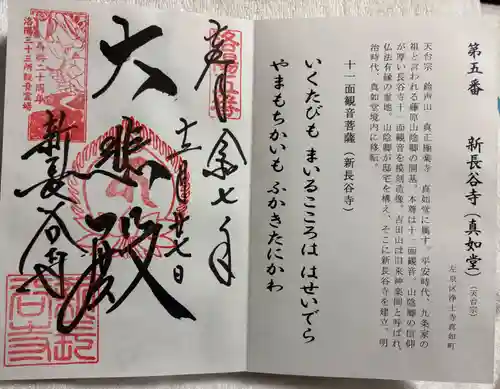 第五番 新長谷寺(真如堂)(天台宗)
左京区浄土寺真如町
天台宗 鈴声山 真正極楽寺 真如堂に属す。平安時代、九条家の
祖と言われる藤原山陰卿の開基。本尊は十一面観音。山陰卿の信仰
が厚い長谷寺十一面観音を模刻造像。吉田山は旧来神楽岡と呼ばれ、
仏法有縁の霊地。山陰卿が邸宅を構え、そこに新長谷寺を建立。明
治時代、真如堂境内に移転。
十一面観音菩薩(新長谷寺)
いくたびも まいるこころは はせいでら
やまもちかいも ふかきたにかわ
洛陽五番
奉拝
令和七年
十二月廿七日
大悲殿
新長谷寺
洛陽三十三所観音霊場
再興二十周年